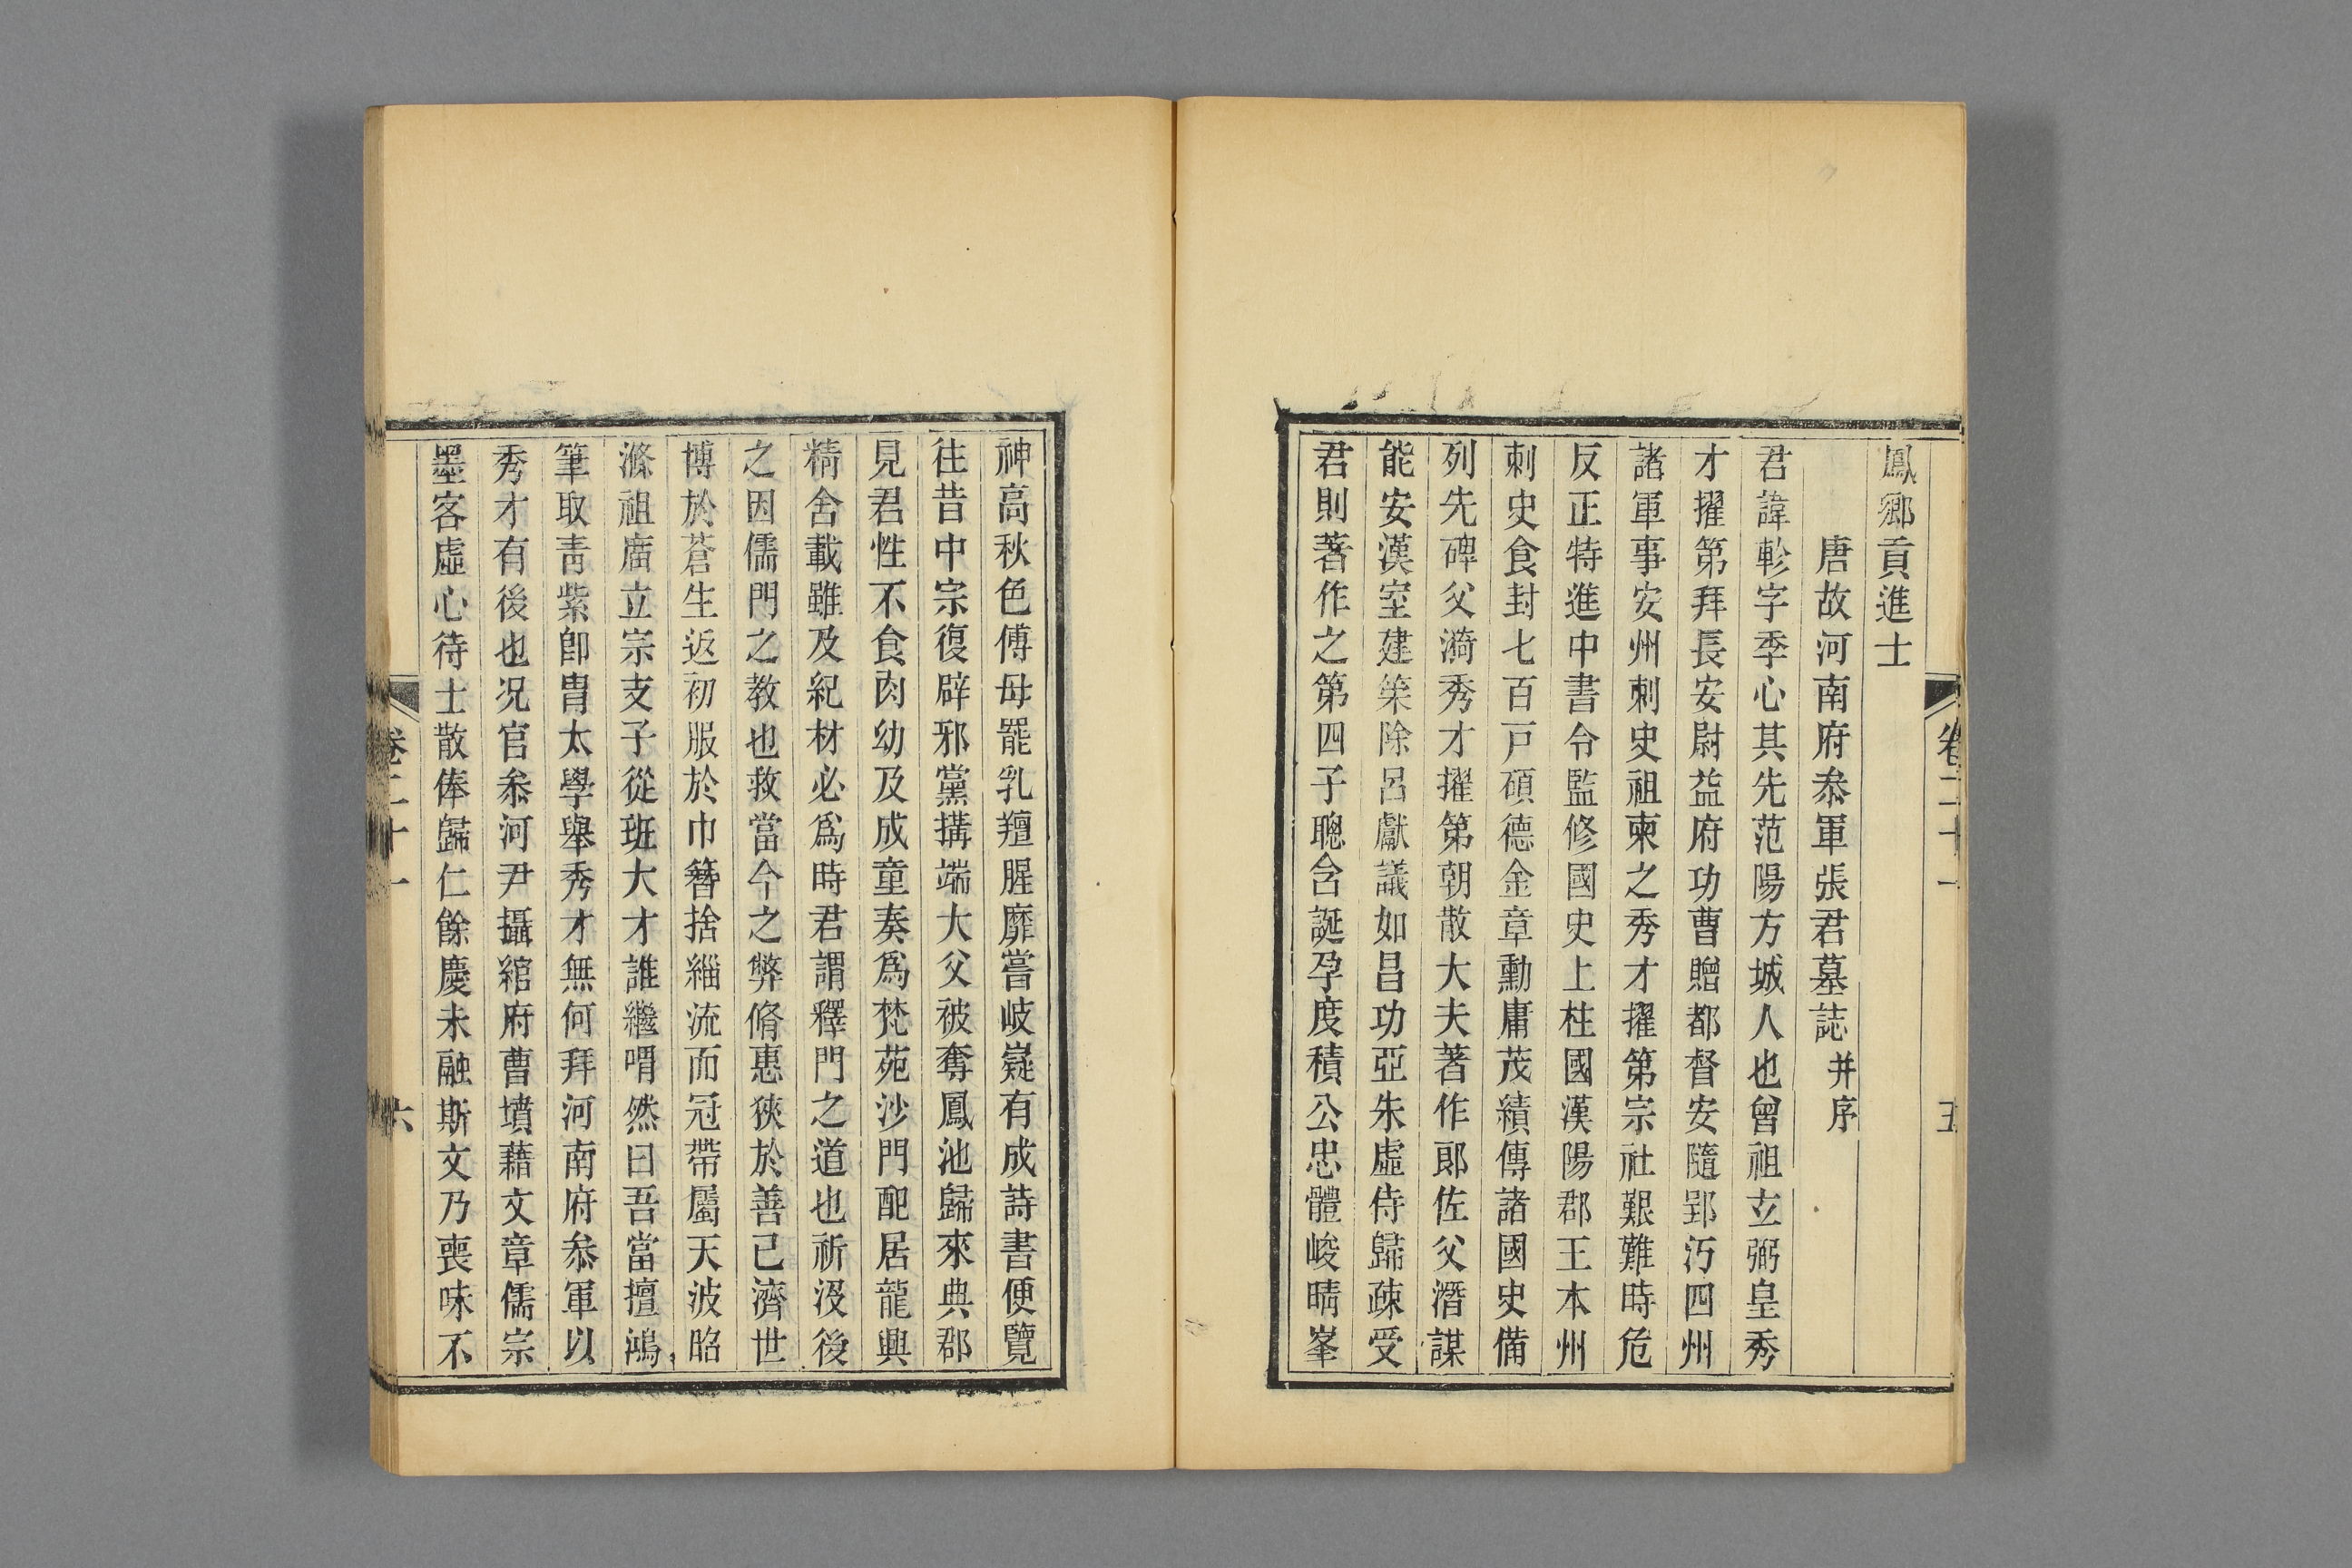 卷二十一
五
鳳鄉貢進士
唐故河南府叅軍張君墓誌并序
君諱軫字季心其先范陽方城人也曾祖立弼皇秀
才擢第拜長安尉益府功曹贈都督安隨郢沔四州
諸軍事安州刺史祖柬之秀才擢第宗社艱難時危
反正特進中書令監修國史上柱國漢陽郡王本州
刺史食封七百戸碩德金章勳庸茂績傳諸國史備
列先碑父漪秀才擢第朝散大夫著作郎佐父潛謀
能安漢室建策除呂獻議如昌功亞朱虛侍歸疎受
君則著作之第四子聰含誕孕度積公忠體峻晴峯
神高秋色傅母罷乳羶腥靡嘗岐嶷有成詩書便覽
往昔中宗復辟邪黨搆端大父被奪鳳池歸來典郡
見君性不食肉幼及成童奏爲梵苑沙門配居龍興
精舍載雖及紀材必爲時君謂釋門之道也祈沒後
之因儒門之教也救當今之弊脩惠狹於善己濟世
博於蒼生返初服於巾簪捨緇流而冠帶屬天波昭
滌祖廟立宗支子從班大才誰繼喟然曰吾當擅鴻
筆取靑紫卽胄太學舉秀才無何拜河南府叅軍以
秀才有後也况官叅河尹攝綰府曹墳藉文章儒宗
墨客虛心待士散俸歸仁餘慶未融斯文乃喪味不
卷二十一
六